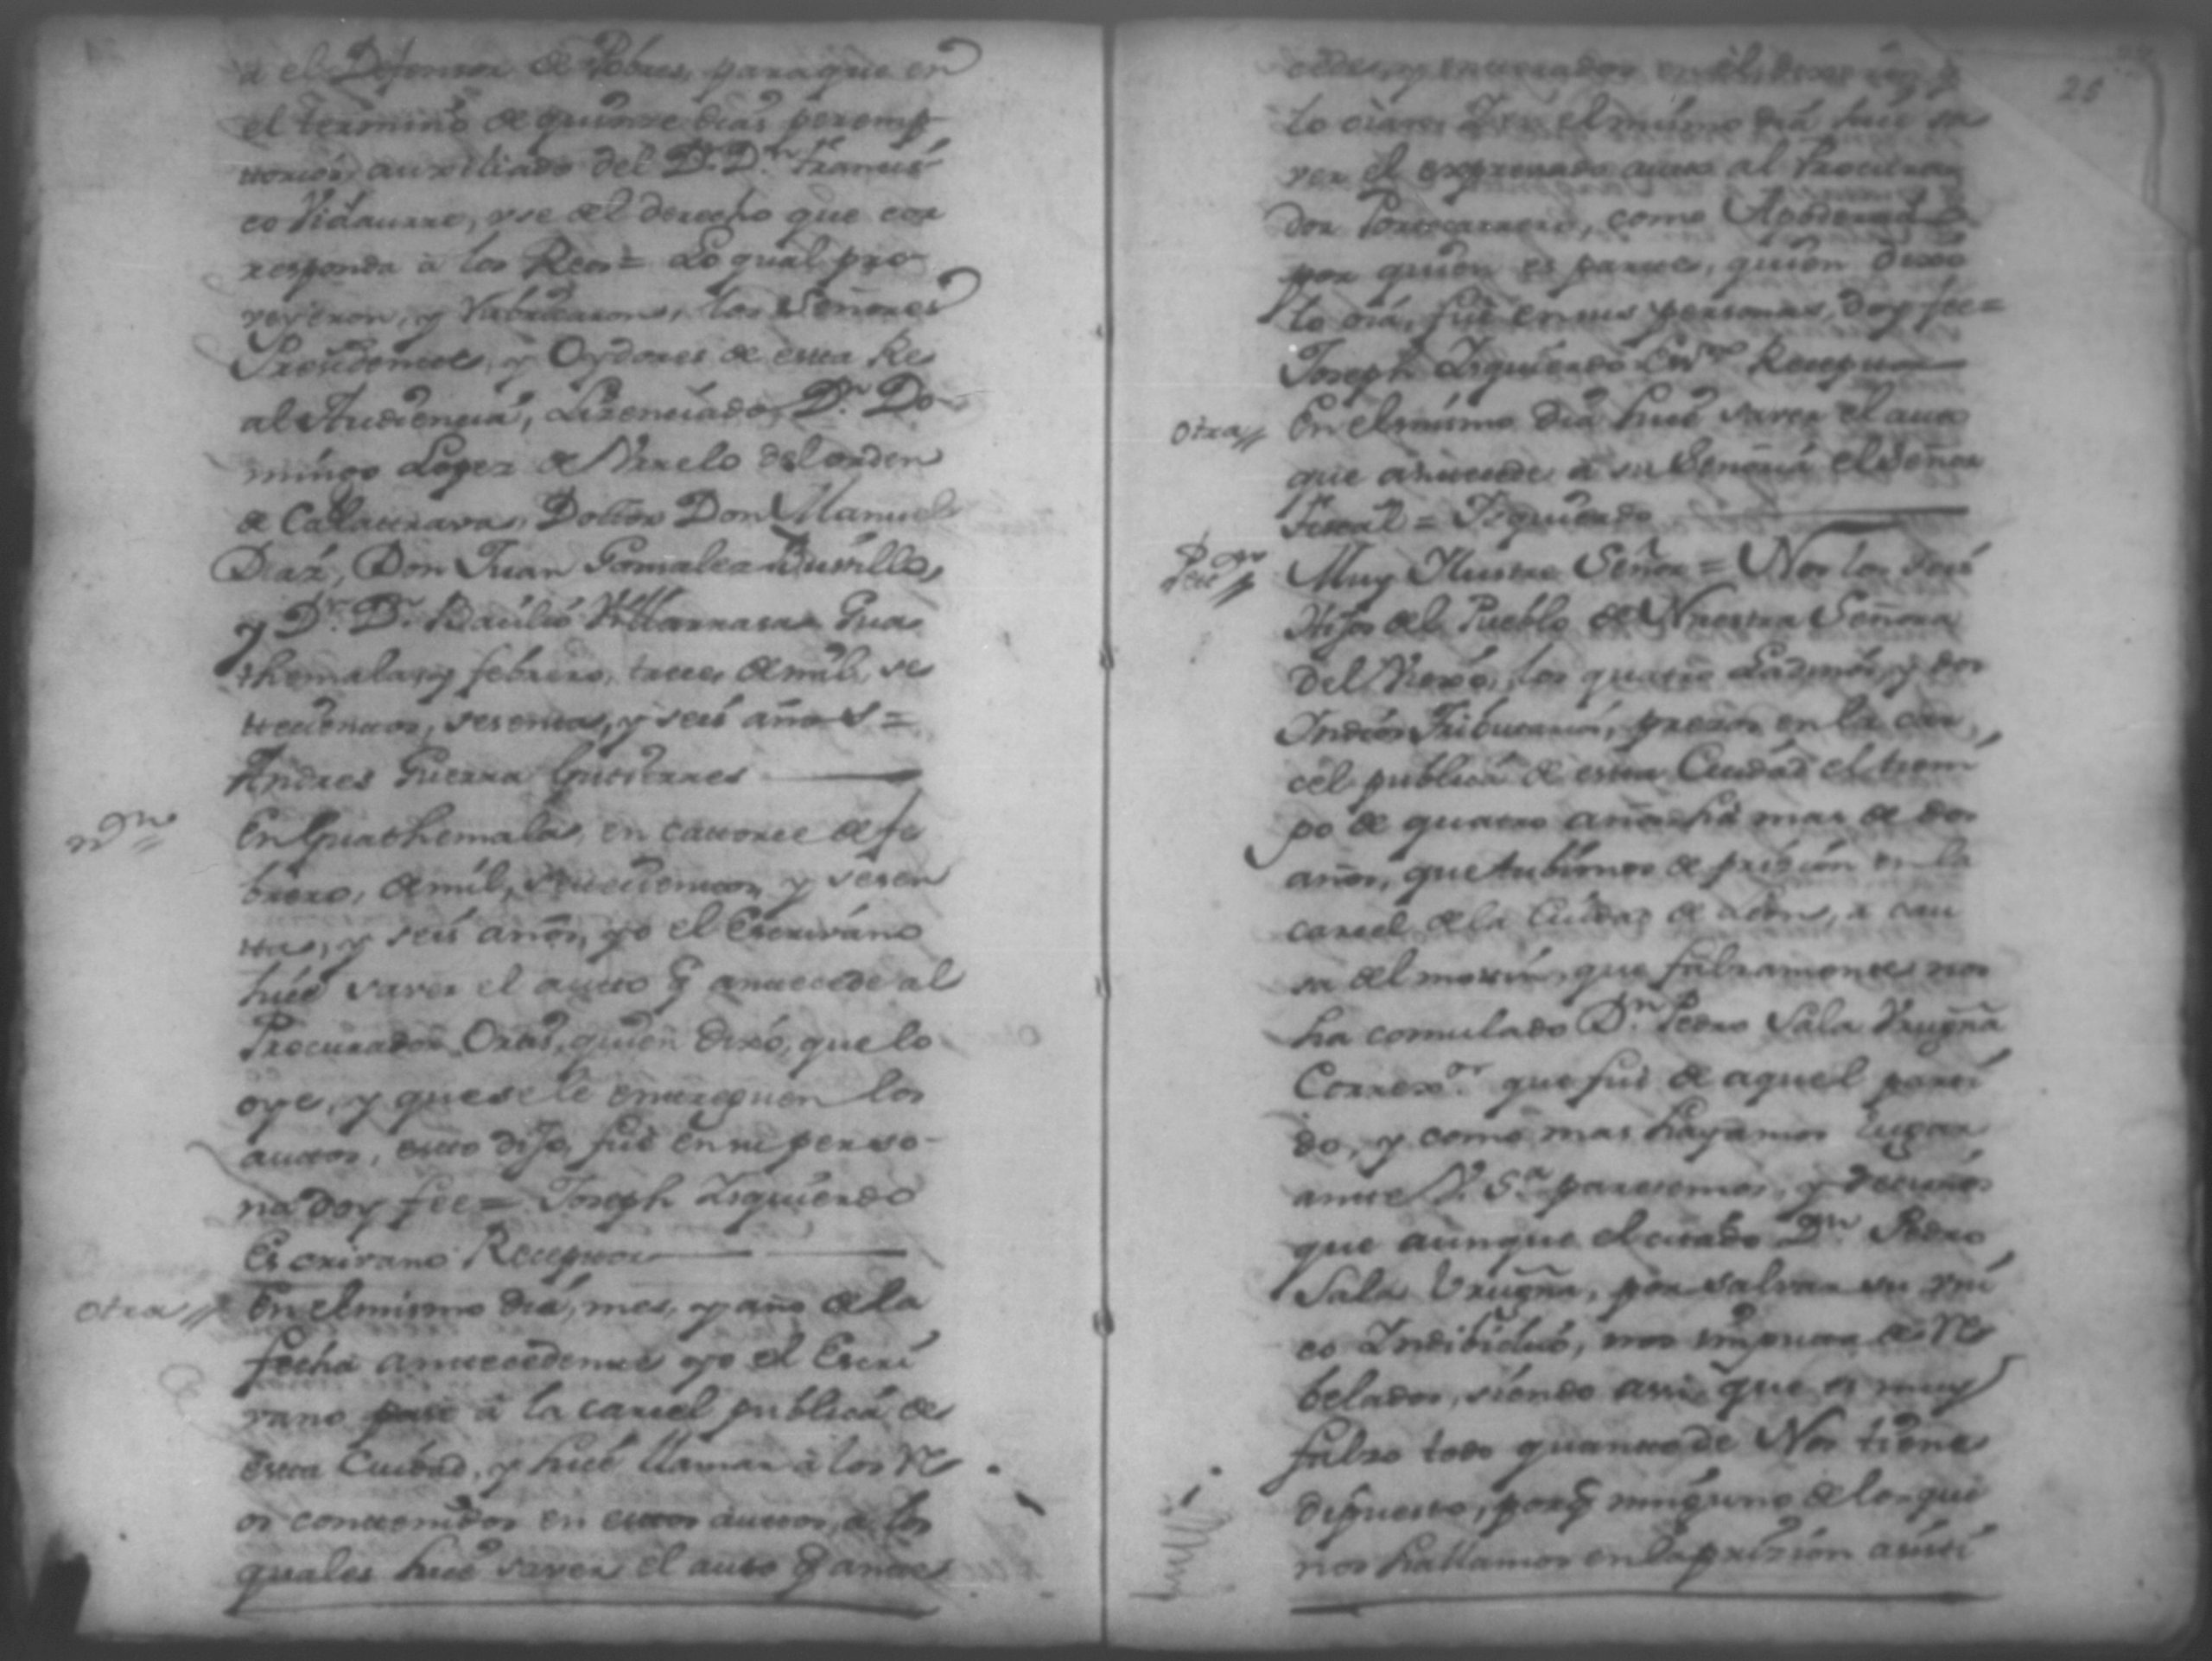 a el Defensor de Pobres, paraque en
el termino de quinze dias peremp-
torios, auxiliado del D.r D.n Francis
co Vidaurre, vse del derecho que cor
responda à los Reos = Lo qual pro-
veyeron, y rubricaron, los Señores
Presidente, y Oydores de esta Re
al Audiencia, Lizenciado D.n Do-
mingo Lopez de Vrrelo del orden
de Calatrava, Doctor Don Manuel
Diaz, Don Juan Gonzalez Bustillo,
y D.r D.n Basilio Villarrasa Gua
themala, y febrero, trece, de mil, se
tecientos, sesenta, y seis años =
Andres Guerra Gutierres
N.on
En Guathemala, en catorce de fe
brero, de mil, setecientos, y sesen
ta, y seis años, yo el Escrivano
hice saver el auto q antecede al
Procurador Oxas, quien dixo, que lo
oye, y quese le entreguen los
autos, esto dijo, fue en su perso-
na doy fee = Joseph Izquierdo
Escrivano Receptor
otra
En el mismo dia, mes, y año de la
fecha antecedente yo el Escri
vano pasé à la carcel publica de
esta Ciudad, y hice llamar à los Re
os contenidos en estos autos, a los
quales hice saver el auto q ante
20
lo oian. Y en el mismo dia hice sa
ver el expresado auto al Procura
dor Portocarrero, como Apoderado
por quien es parte, quien dixo
lo oiá, fue en sus personas, doy fee =
Joseph Izquierdo Esn.o Receptor
otra
En el mismo dia hice saver el auto
que antecede à su Señoria el Señor
Fiscal = Izquierdo
Pet.on
Muy Ilustre Señor = Nos los seis
Hijos del Pueblo de Nuestra Señora
del Viexo, los quatro Ladinos, y dos
Indios Tributarios, presos en la car
cel publica de esta Ciudad el tiem
po de quatro años hà mas de dos
años, que tubimos de prision en la
carcel de la Ciudad de Leon, a cau
sa del motin, que falsamente nos
ha comulado D.n Pedro Sala Vrueña
Correx.or que fue de aquel parti
do, y como mas hayamos lugar
ante V. S.a paresemos, y decimos
que aunque el citado D.n Pedro
Sala Vrueña, por salvar su vni
co Indibiduo, nos imputa de Re
belados, siendo assi que es muy
falso todo quanto de Nos tiene
dipuesto, porq ninguno de los que
nos hallamos en la prision asisti